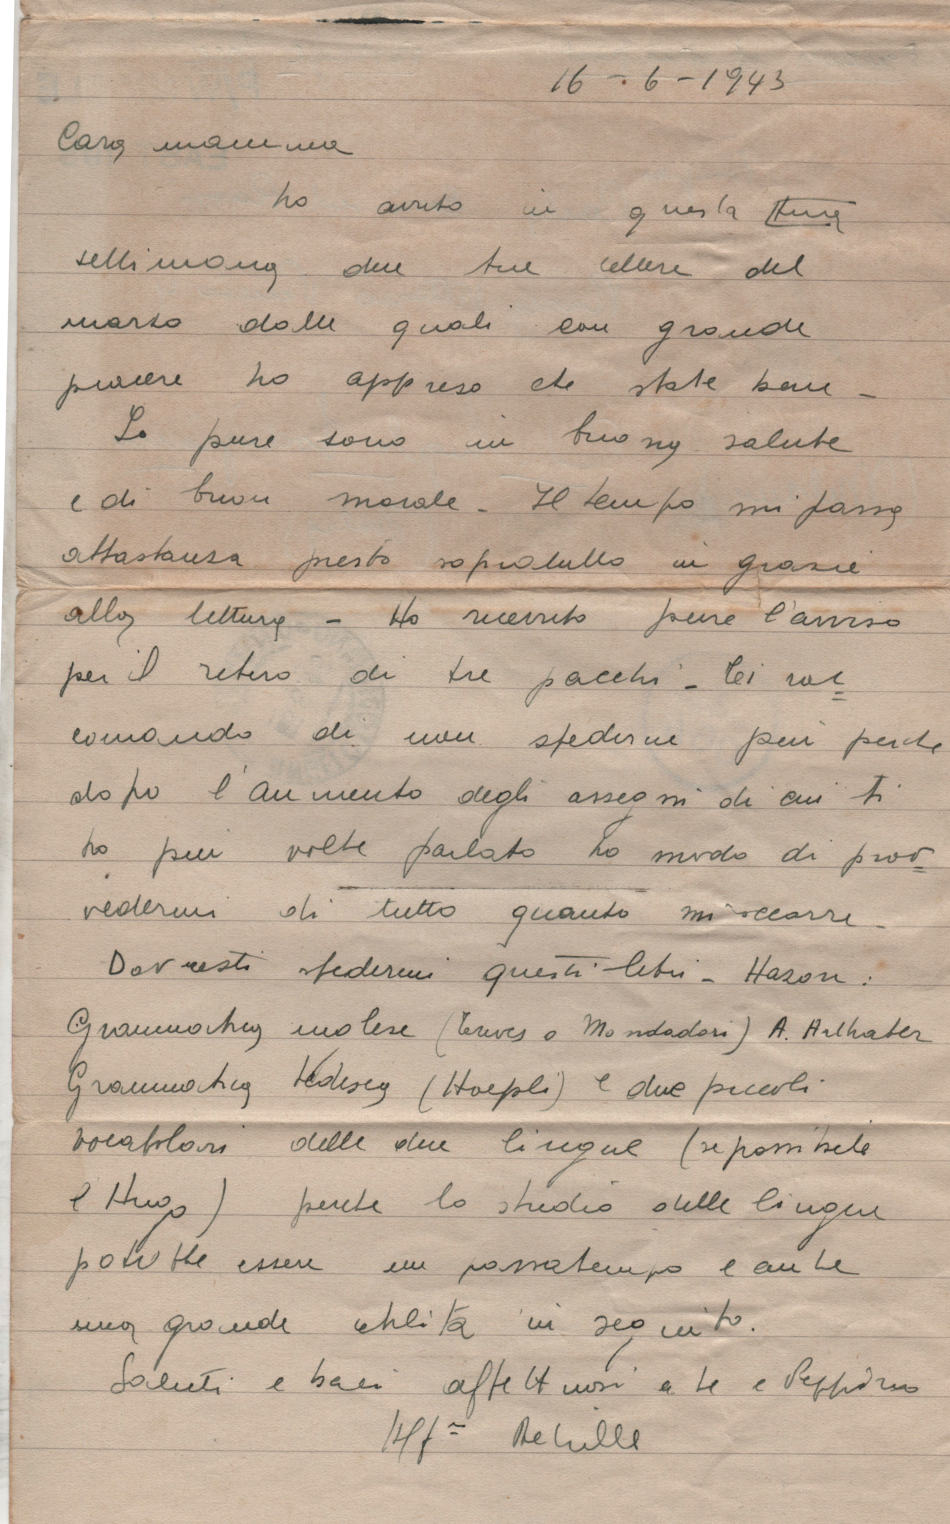 16-6-1943
Cara mamma
ho avuto in questa
settimana due tue lettere del
marzo dalle quali con grande
piacere ho appreso che state bene -
Io pure sono in buona salute
e di buon morale - Il tempo mi passa
abbastanza presto sopratutto in grazie
alla lettura - Ho ricevuto pure l'avviso
per il retiro di tre pacchi - Ti rac=
comando di non spedirne più perche
dopo l'aumento degli assegni di cui ti
ho più volte parlato ho modo di prov=
vedermi di tutto quanto mi occorre -
Dovresti spedirmi questi libri - Hazon:
Grammatica inglese (Treves o Mondadori) A.
Grammatica tedesca (Hoepli) e due piccoli
vocabolari delle due lingue (se possibile
l'Hugo) perche lo studio delle lingue
potrebbe essere un passatempo e anche
una grande utilità in seguito.
Saluti e baci affettuosi a te e Peppino
Aff= Achille